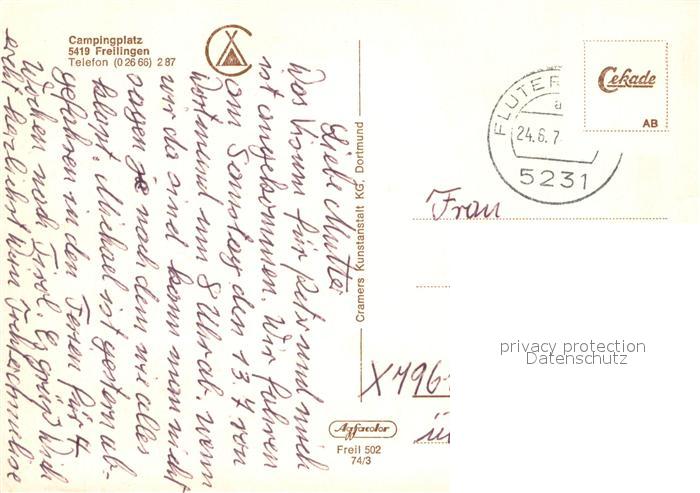 Campingplatz
5419 Freilingen
Telefon (0 26 66) 2 87
Liebe Mutter
Das Visum für Petr und mich
ist angekommen. Wir fahren
am Samstag den 13.7 von
Dortmund um 8 Uhr ab wann
wir da sind kann man nicht
sagen je nach dem wie alles
klappt. Michael ist gestern ab-
gefahren in den Ferien für 4
Wochen nach Tirol. Es grüßt Dich
recht herzlichst Dein
Cramers Kunstanstalt KG, Dortmund
Agfacolor
Freil 502
74/3
Cekade
AB
FLUTER
a
24.6.7
5231
Frau
X796
ü
privacy protection
Datenschutz